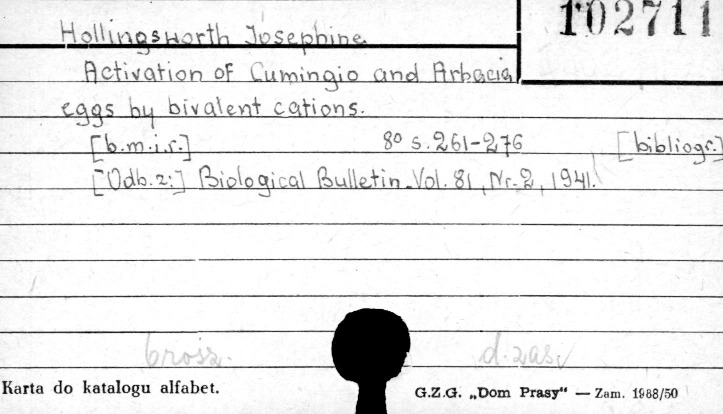 102711
Hollingsworth Josephine
Activation of Cumingio and Arbacia
eggs by bivalent cations.
[b.m.i.r.] 8° s. 261-276 [bibliogr.]
[Odb.z:] Biological Bulletin. Vol. 81, Nr. 2, 1941.
brosz. d. zas.
Karta do katalogu alfabet. G.Z.G. „Dom Prasy“ — Zam. 1988/50